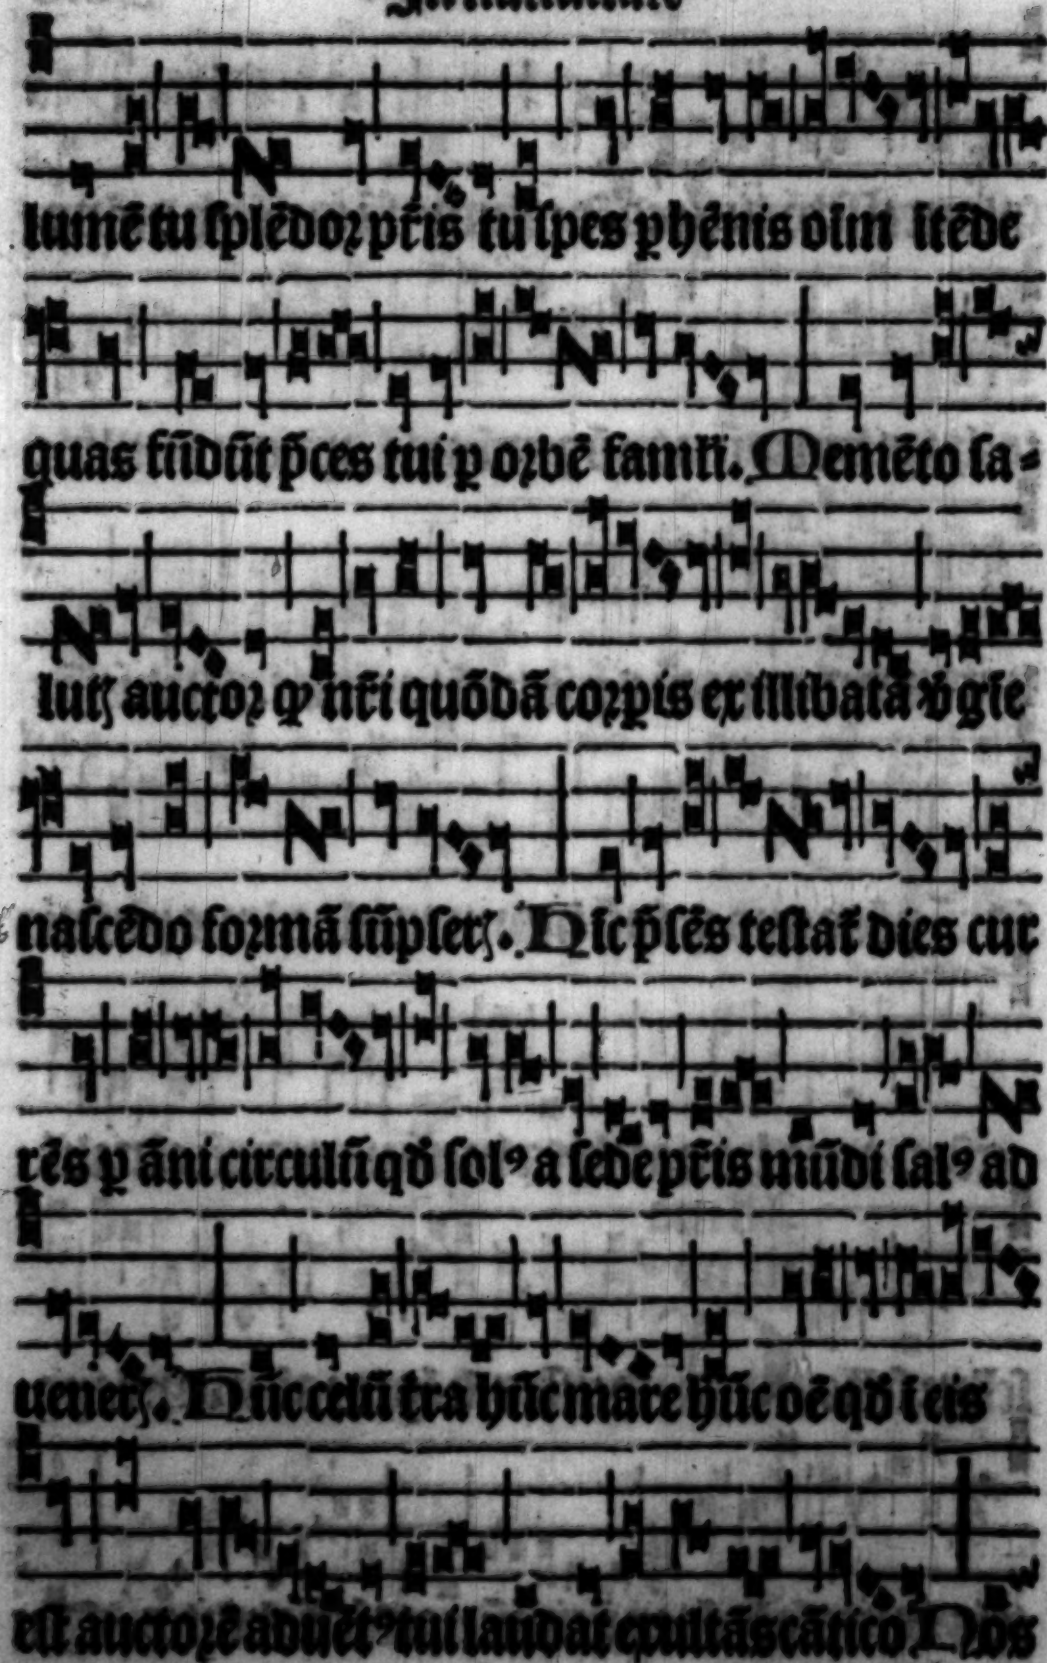 lumē tu ſplēdoꝛ pr̄is tu ſpes ꝑhēnis oīm ītēde
quas fūdūt p̄ces tui ꝑ oꝛbē famli. Memēto ſa⸗
lutꝭ auctoꝛ ꝙ nr̄i quōdā coꝛꝑis ex illibata ꝟgīe
naſcēdo foꝛmā ſūpſerꝭ. Hic p̄ſēs teſtaꝉ dies cur
rēs ꝑ āni circulū qḋ ſolꝰ a ſede pr̄is mūdi ſalꝰ ad
uenerꝭ. Hūc celū ꝉra hūc mare hūc oē qḋ ī eis
eſt auctoꝛē aduētꝰ tui laudat exultās cātico Nos